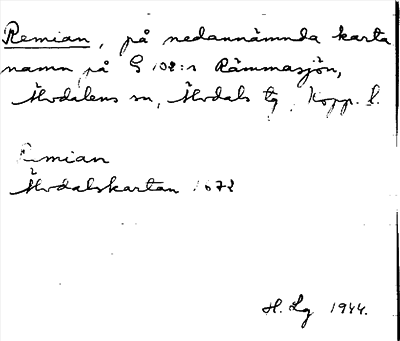 Remian, på nedannämnda karta
namn på S 102:1 Rämmasjön,
Älvdalens sn, Älvdals tg, Kopp. l.
Remian
Älvdalskartan 1672
H. Lg 1944.